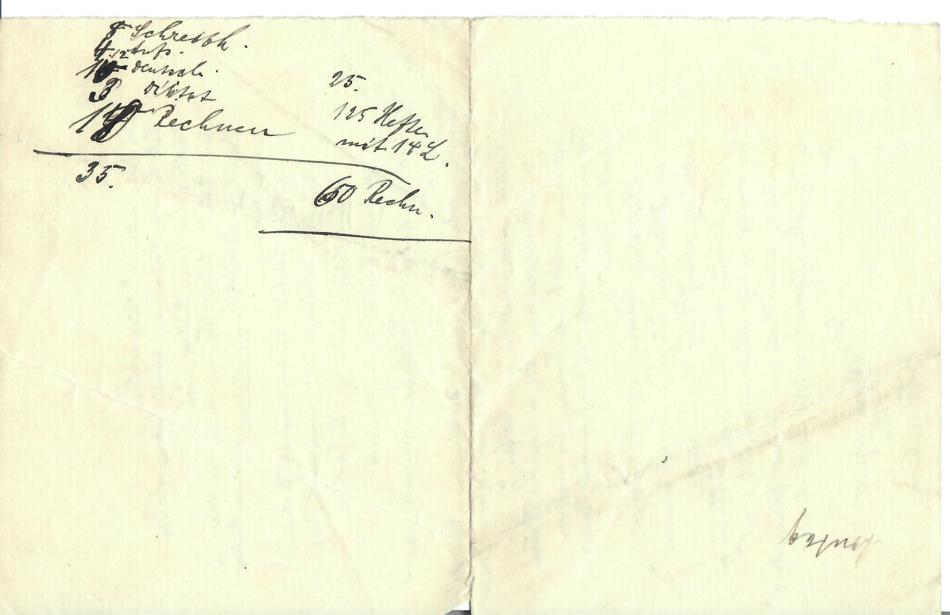 8 Schreibh.
4 Aufs.
Deutsch.
3 Diktat
Rechnen
35.
25.
125 Hefte
mit 14 L.
60 Rechn.